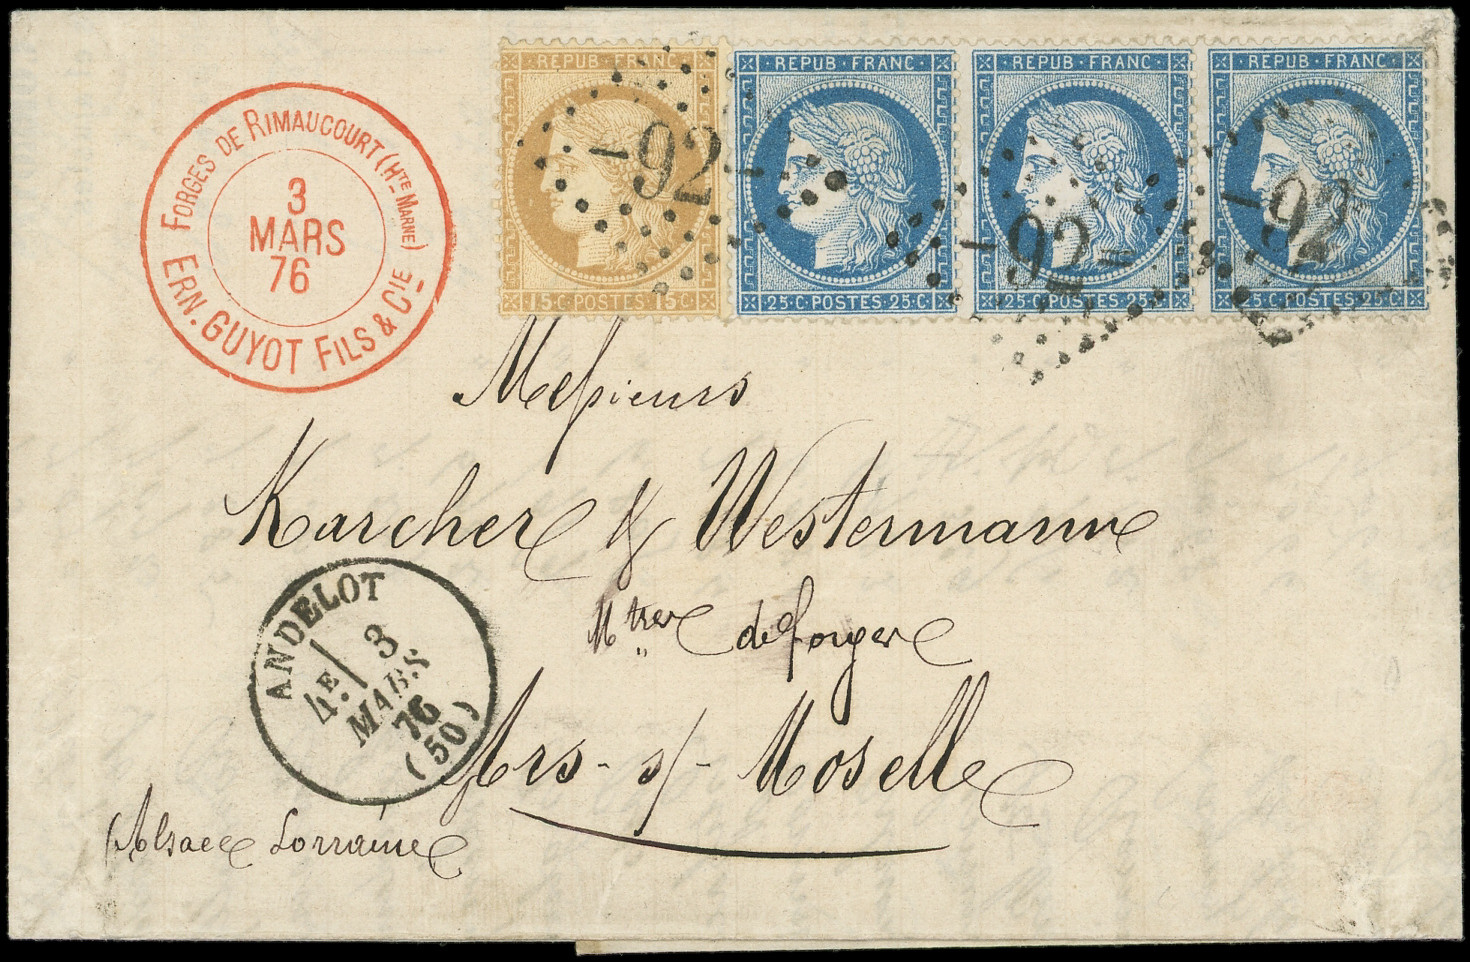 FORGES DE RIMAUCOURT (HTE MARNE)
3
MARS
76
ERN. GUYOT FILS & CIE
REPUB FRANC
15 C POSTES 15 C
REPUB FRANC
25 C POSTES 25 C
REPUB FRANC
25 C POSTES 25 C
REPUB FRANC
25 C POSTES 25 C
92
92
92
Messieurs
Karcher & Westermann
Mtres de forges
Ars-s/-Moselle
(Alsace Lorraine
ANDELOT
4E 3
MARS
76
(50)